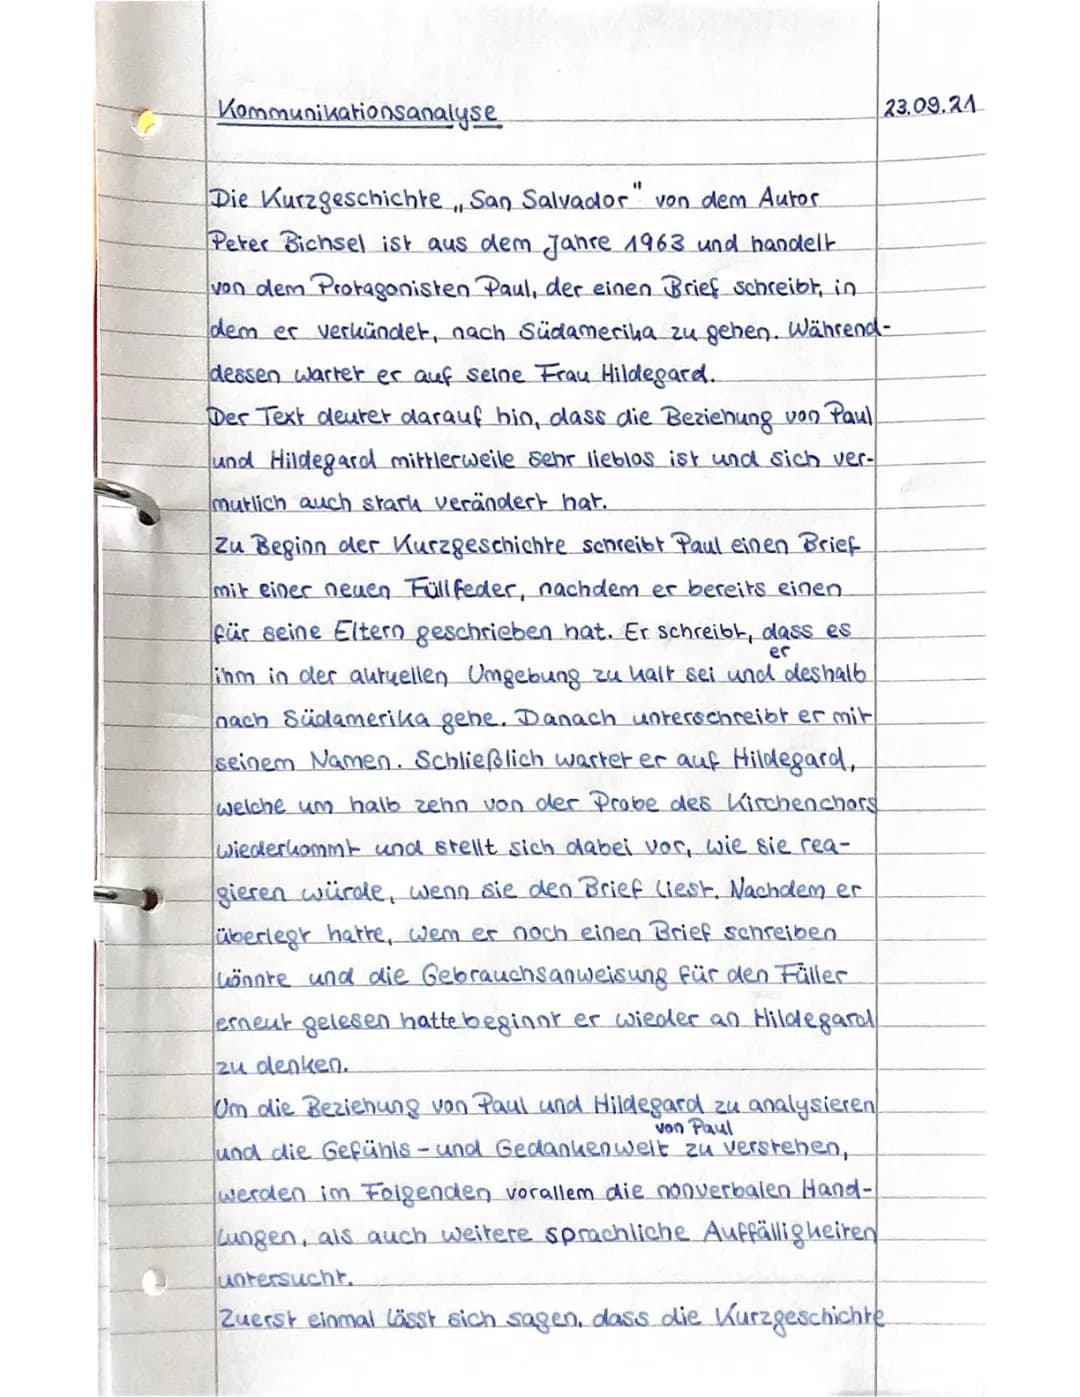 Kommunikationsanalyse 23.09.21
Die Kurzgeschichte „San Salvador" von dem Autor
Peter Bichsel ist aus dem Jahre 1963 und handelt
von dem Protagonisten Paul, der einen Brief schreibt, in
dem er verkündet, nach Südamerika zu gehen. Während-
dessen wartet er auf seine Frau Hildegard.
Der Text deutet darauf hin, dass die Beziehung von Paul
und Hildegard mittlerweile sehr lieblos ist und sich ver-
mutlich auch stark verändert hat.
Zu Beginn der Kurzgeschichte schreibt Paul einen Brief
mit einer neuen Füllfeder, nachdem er bereits einen
für seine Eltern geschrieben hat. Er schreibt, dass es
er
ihm in der aktuellen Umgebung zu kalt sei und deshalb
nach Südamerika gehe. Danach unterschreibt er mit
seinem Namen. Schließlich wartet er auf Hildegard,
welche um halb zehn von der Probe des Kirchenchors
wiederkommt und stellt sich dabei vor, wie sie rea-
gieren würde, wenn sie den Brief liest. Nachdem er
überlegt hatte, wem er noch einen Brief schreiben
könnte und die Gebrauchsanweisung für den Füller
erneut gelesen hatte beginnt er wieder an Hildegard
zu denken.
Um die Beziehung von Paul und Hildegard zu analysieren
von Paul
und die Gefühls- und Gedankenwelt zu verstehen,
werden im Folgenden vorallem die nonverbalen Hand-
lungen, als auch weitere sprachliche Auffälligkeiten
untersucht.
Zuerst einmal lässt sich sagen, dass die Kurzgeschichte